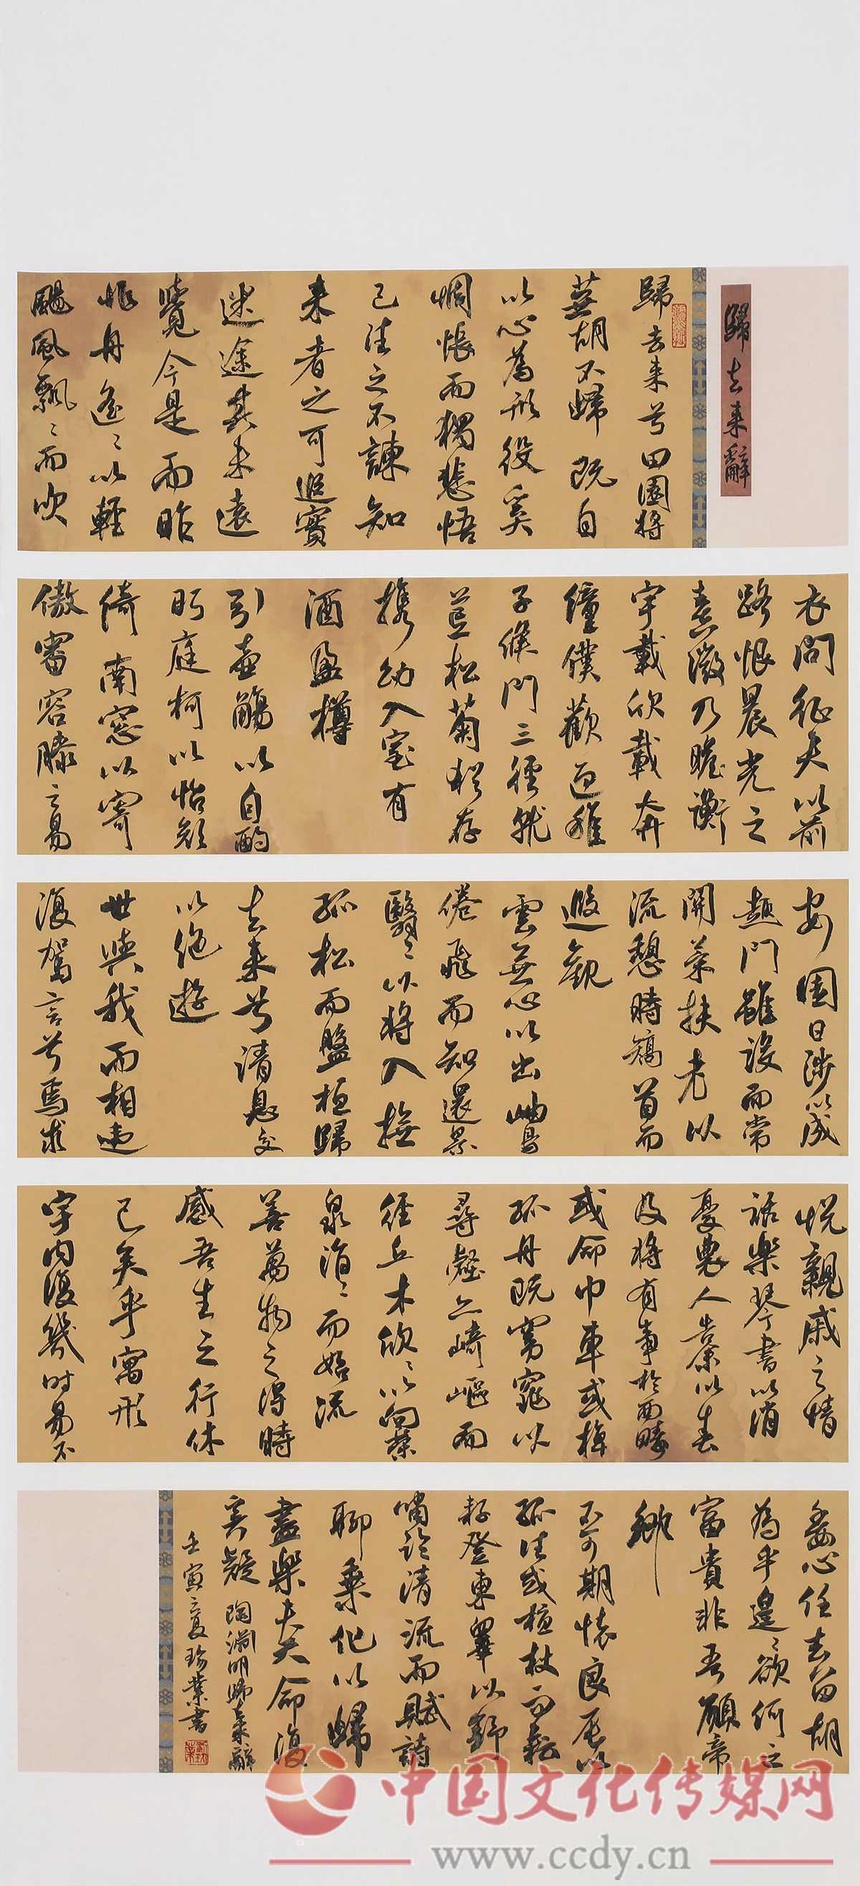 歸去来辭
歸去来兮田園将
蕪胡不歸既自
以心為形役奚
惆悵而獨悲悟
已往之不諫知
来者之可追實
迷途其未遠
覺今是而昨
非舟遙〻以輕
颺風飄〻而吹
衣問征夫以前
路恨晨光之
熹微乃瞻衡
宇載欣載奔
僮僕歡迎稚
子候門三徑就
荒松菊猶存
携幼入室有
酒盈樽
引壺觴以自酌
眄庭柯以怡顏
倚南窓以寄
傲審容膝之易
安園日涉以成
趣門雖設而常
關策扶老以
流憩時矯首而
遐觀
雲無心以出岫鳥
倦飛而知還景
翳〻以将入撫
孤松而盤桓歸
去来兮請息交
以绝遊
世與我而相違
復駕言兮焉求
悦親戚之情
話樂琴書以消
憂農人告余以春
及将有事於西疇
或命巾車或棹
孤舟既窈窕以
尋壑亦崎嶇而
經丘木欣〻以向榮
泉涓〻而始流
善萬物之得時
感吾生之行休
已矣乎寓形
宇内復幾时曷不
委心任去留胡
為乎遑〻欲何之
富貴非吾願帝
鄉
不可期懷良辰以
孤往或植杖而耘
耔登東皋以舒
嘯臨清流而賦詩
聊乘化以歸
盡樂夫天命復
奚疑 陶淵明歸来辭
壬寅之夏珍業書
中国文化传媒网
www.ccdy.cn